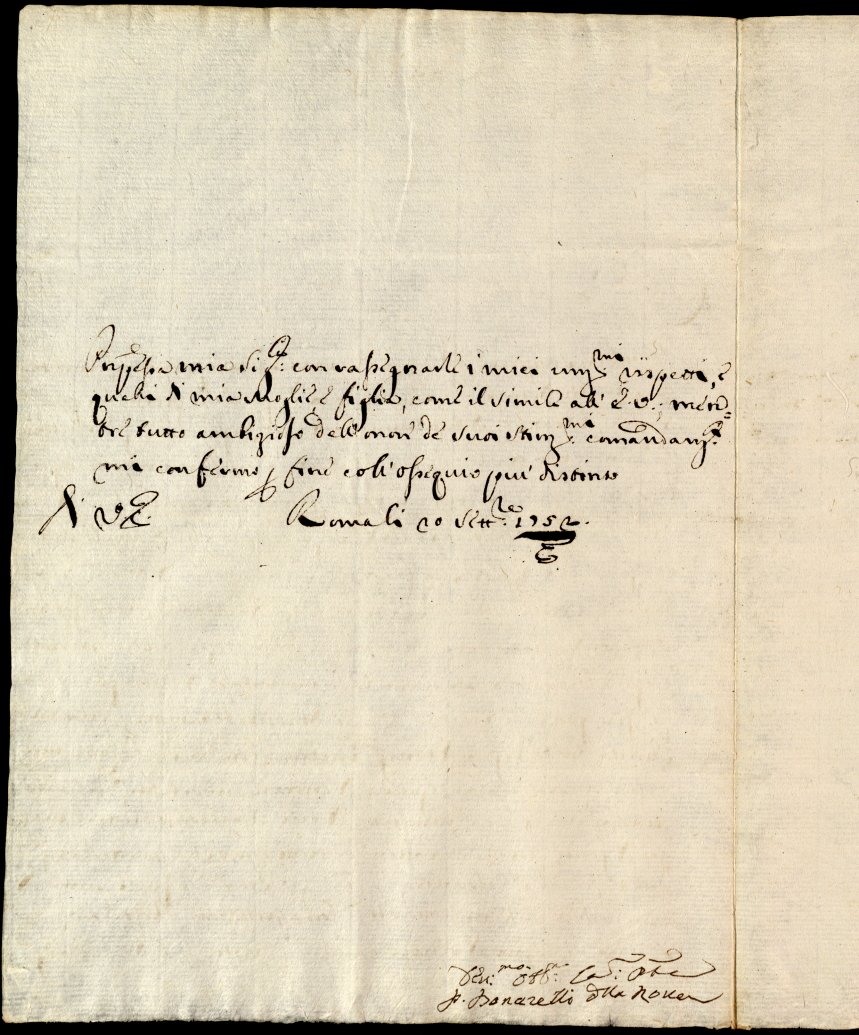 mia di E: con rassegnarle i miei um:mi rispetti, e
quelli di mia Moglie, e figlia, come il simile all' E. V.; men=
tre tutto ambizioso dell' onore de suoi stim:mi comandam:ti
mi confermo p fine coll' ossequio più distinto
di V E. Roma li 20 Sett:re 1752.
Dev:mo Obb:
P. Bonarelli dlla Rovere